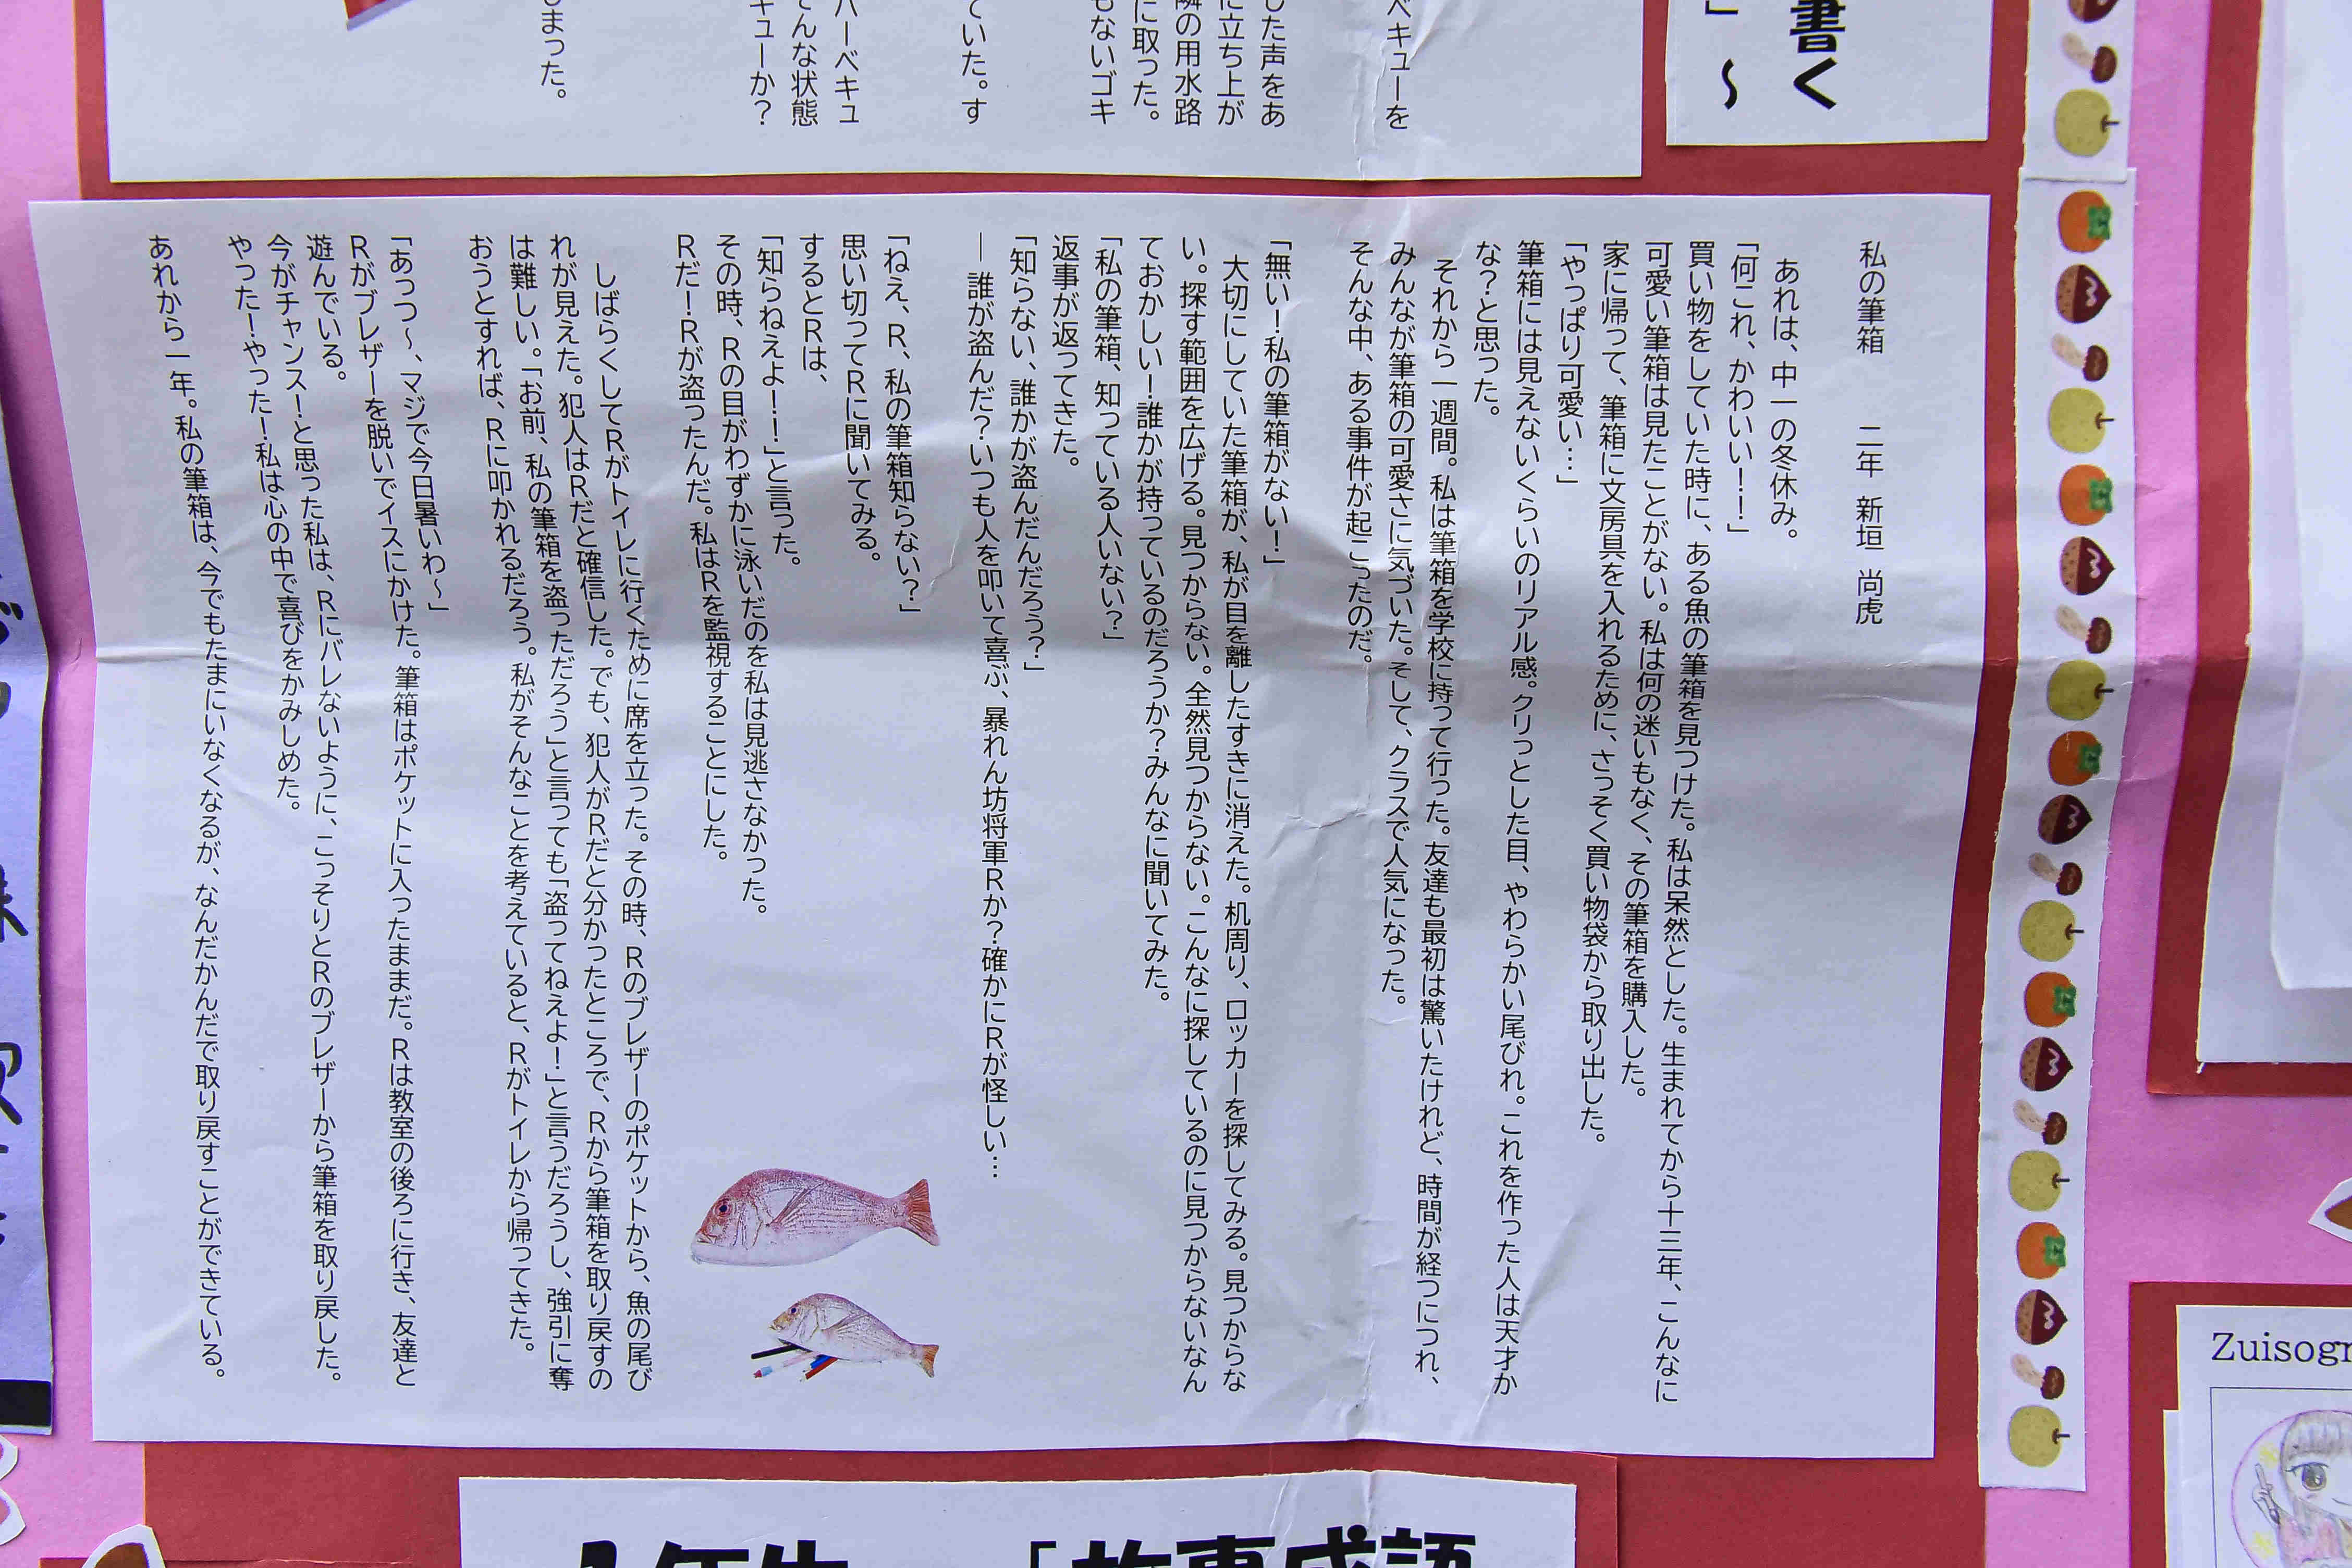 書く
」～
ベキューを
した声をあ
に立ち上が
隣の用水路
に取った。
もないゴキ
ていた。す
バーベキュ
てんな状態
キューか？
しまった。
私の筆箱　　二年　新垣　尚虎
あれは、中一の冬休み。
「何これ、かわいい！！」
買い物をしていた時に、ある魚の筆箱を見つけた。私は呆然とした。生まれてから十三年、こんなに
可愛い筆箱は見たことがない。私は何の迷いもなく、その筆箱を購入した。
家に帰って、筆箱に文房具を入れるために、さっそく買い物袋から取り出した。
「やっぱり可愛い…」
筆箱には見えないくらいのリアル感。クリっとした目、やわらかい尾びれ。これを作った人は天才か
な？と思った。
それから一週間。私は筆箱を学校に持って行った。友達も最初は驚いたけれど、時間が経つにつれ、
みんなが筆箱の可愛さに気づいた。そして、クラスで人気になった。
そんな中、ある事件が起こったのだ。
「無い！私の筆箱がない！」
大切にしていた筆箱が、私が目を離したすきに消えた。机周り、ロッカーを探してみる。見つからな
い。探す範囲を広げる。見つからない。全然見つからない。こんなに探しているのに見つからないなん
ておかしい！誰かが持っているのだろうか？みんなに聞いてみた。
「私の筆箱、知っている人いない？」
返事が返ってきた。
「知らない、誰かが盗んだんだろう？」
―誰が盗んだ？いつも人を叩いて喜ぶ、暴れん坊将軍Ｒか？確かにＲが怪しい…
「ねえ、Ｒ、私の筆箱知らない？」
思い切ってＲに聞いてみる。
するとＲは、
「知らねえよ！！」と言った。
その時、Ｒの目がわずかに泳いだのを私は見逃さなかった。
Ｒだ！Ｒが盗ったんだ。私はＲを監視することにした。
しばらくしてＲがトイレに行くために席を立った。その時、Ｒのブレザーのポケットから、魚の尾び
れが見えた。犯人はＲだと確信した。でも、犯人がＲだと分かったところで、Ｒから筆箱を取り戻すの
は難しい。「お前、私の筆箱を盗っただろう」と言っても「盗ってねえよ！」と言うだろうし、強引に奪
おうとすれば、Ｒに叩かれるだろう。私がそんなことを考えていると、Ｒがトイレから帰ってきた。
「あっつ～、マジで今日暑いわ～」
Ｒがブレザーを脱いでイスにかけた。筆箱はポケットに入ったままだ。Ｒは教室の後ろに行き、友達と
遊んでいる。
今がチャンス！と思った私は、Ｒにバレないように、こっそりとＲのブレザーから筆箱を取り戻した。
やった！やった！私は心の中で喜びをかみしめた。
あれから一年。私の筆箱は、今でもたまにいなくなるが、なんだかんだで取り戻すことができている。
1年生　「故事成語
Zuisogr